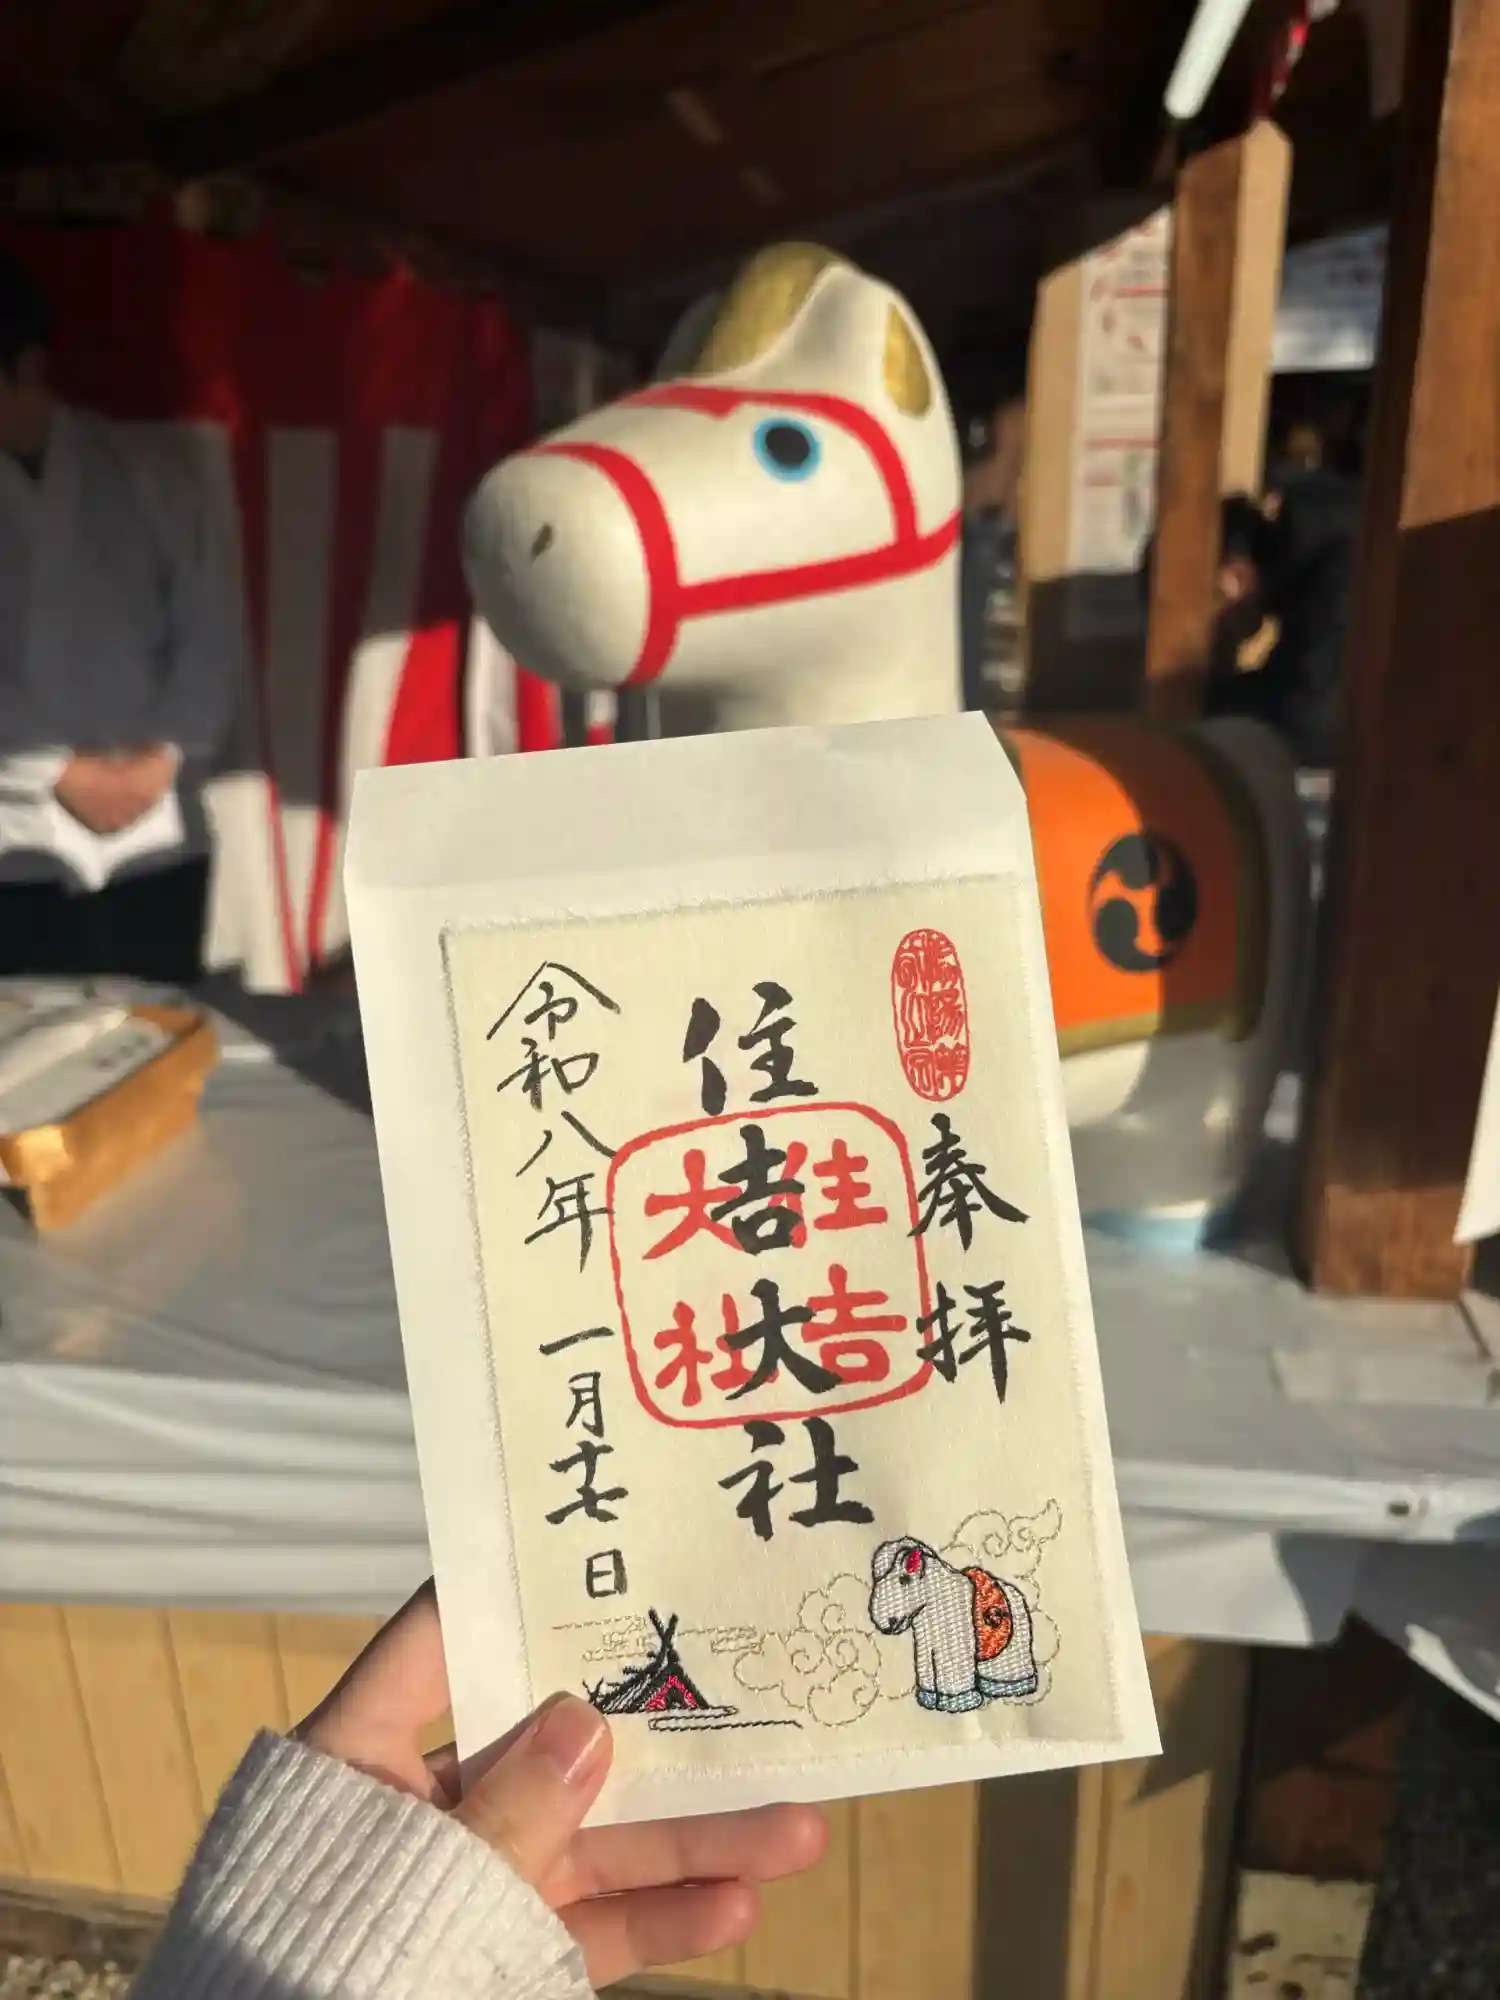 奉拝
住吉大社
住吉
大社
令和八年 一月十七日